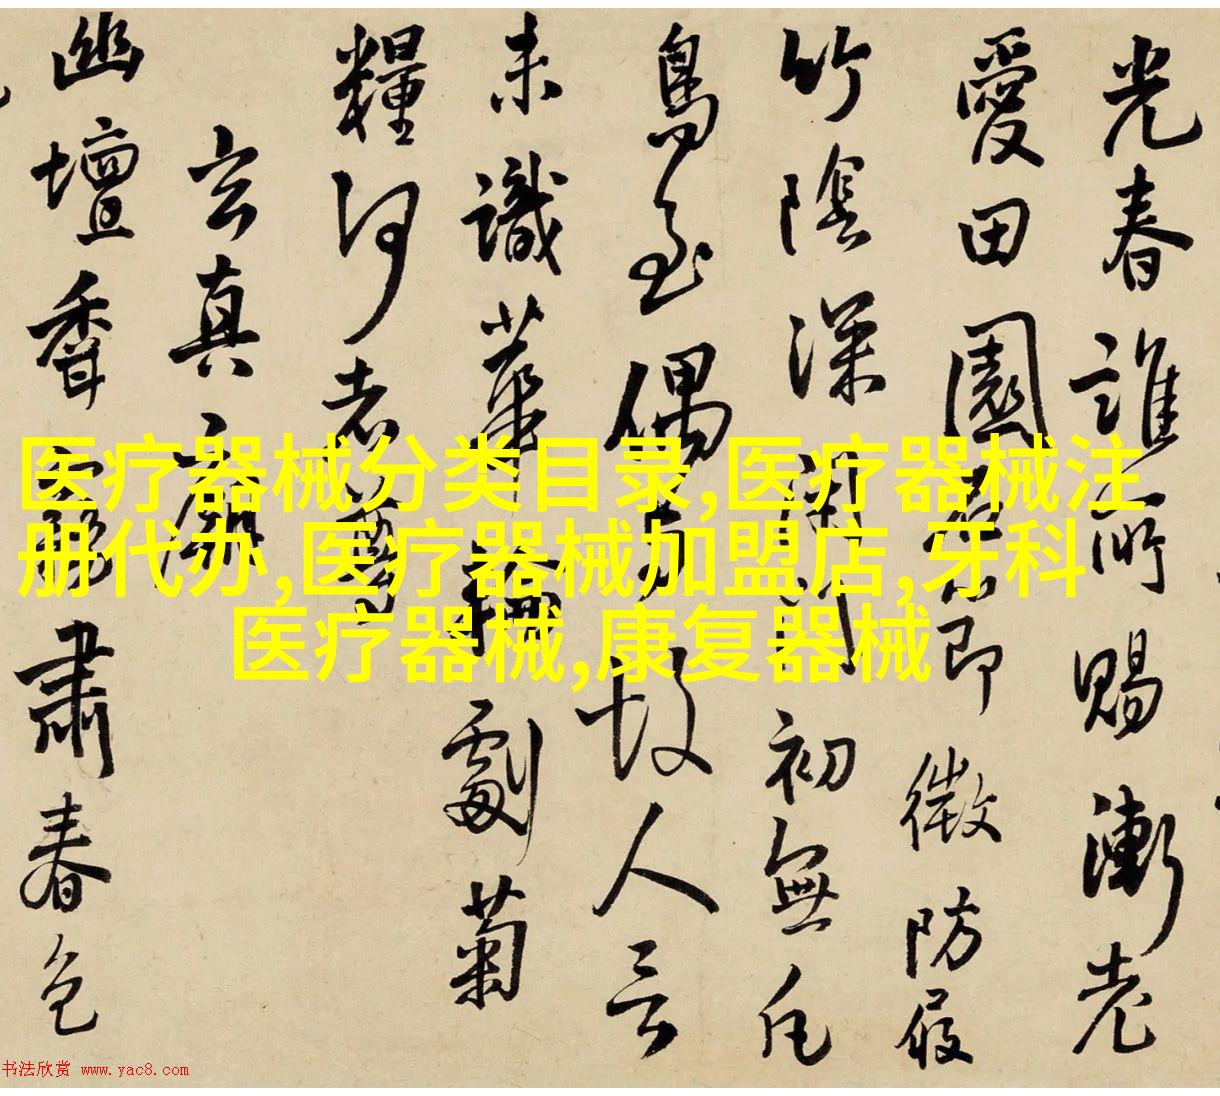 光春誰所賜漸老
愛田園節微防屐
竹陰深閉門初無凡
鳥至偶有故人云
未識華菊
糧何老
玄真廟
幽壇香肅春色
医疗器械分类目录,医疗器械注
册代办,医疗器械加盟店,牙科
医疗器械,康复器械
书法欣赏 www.yac8.com